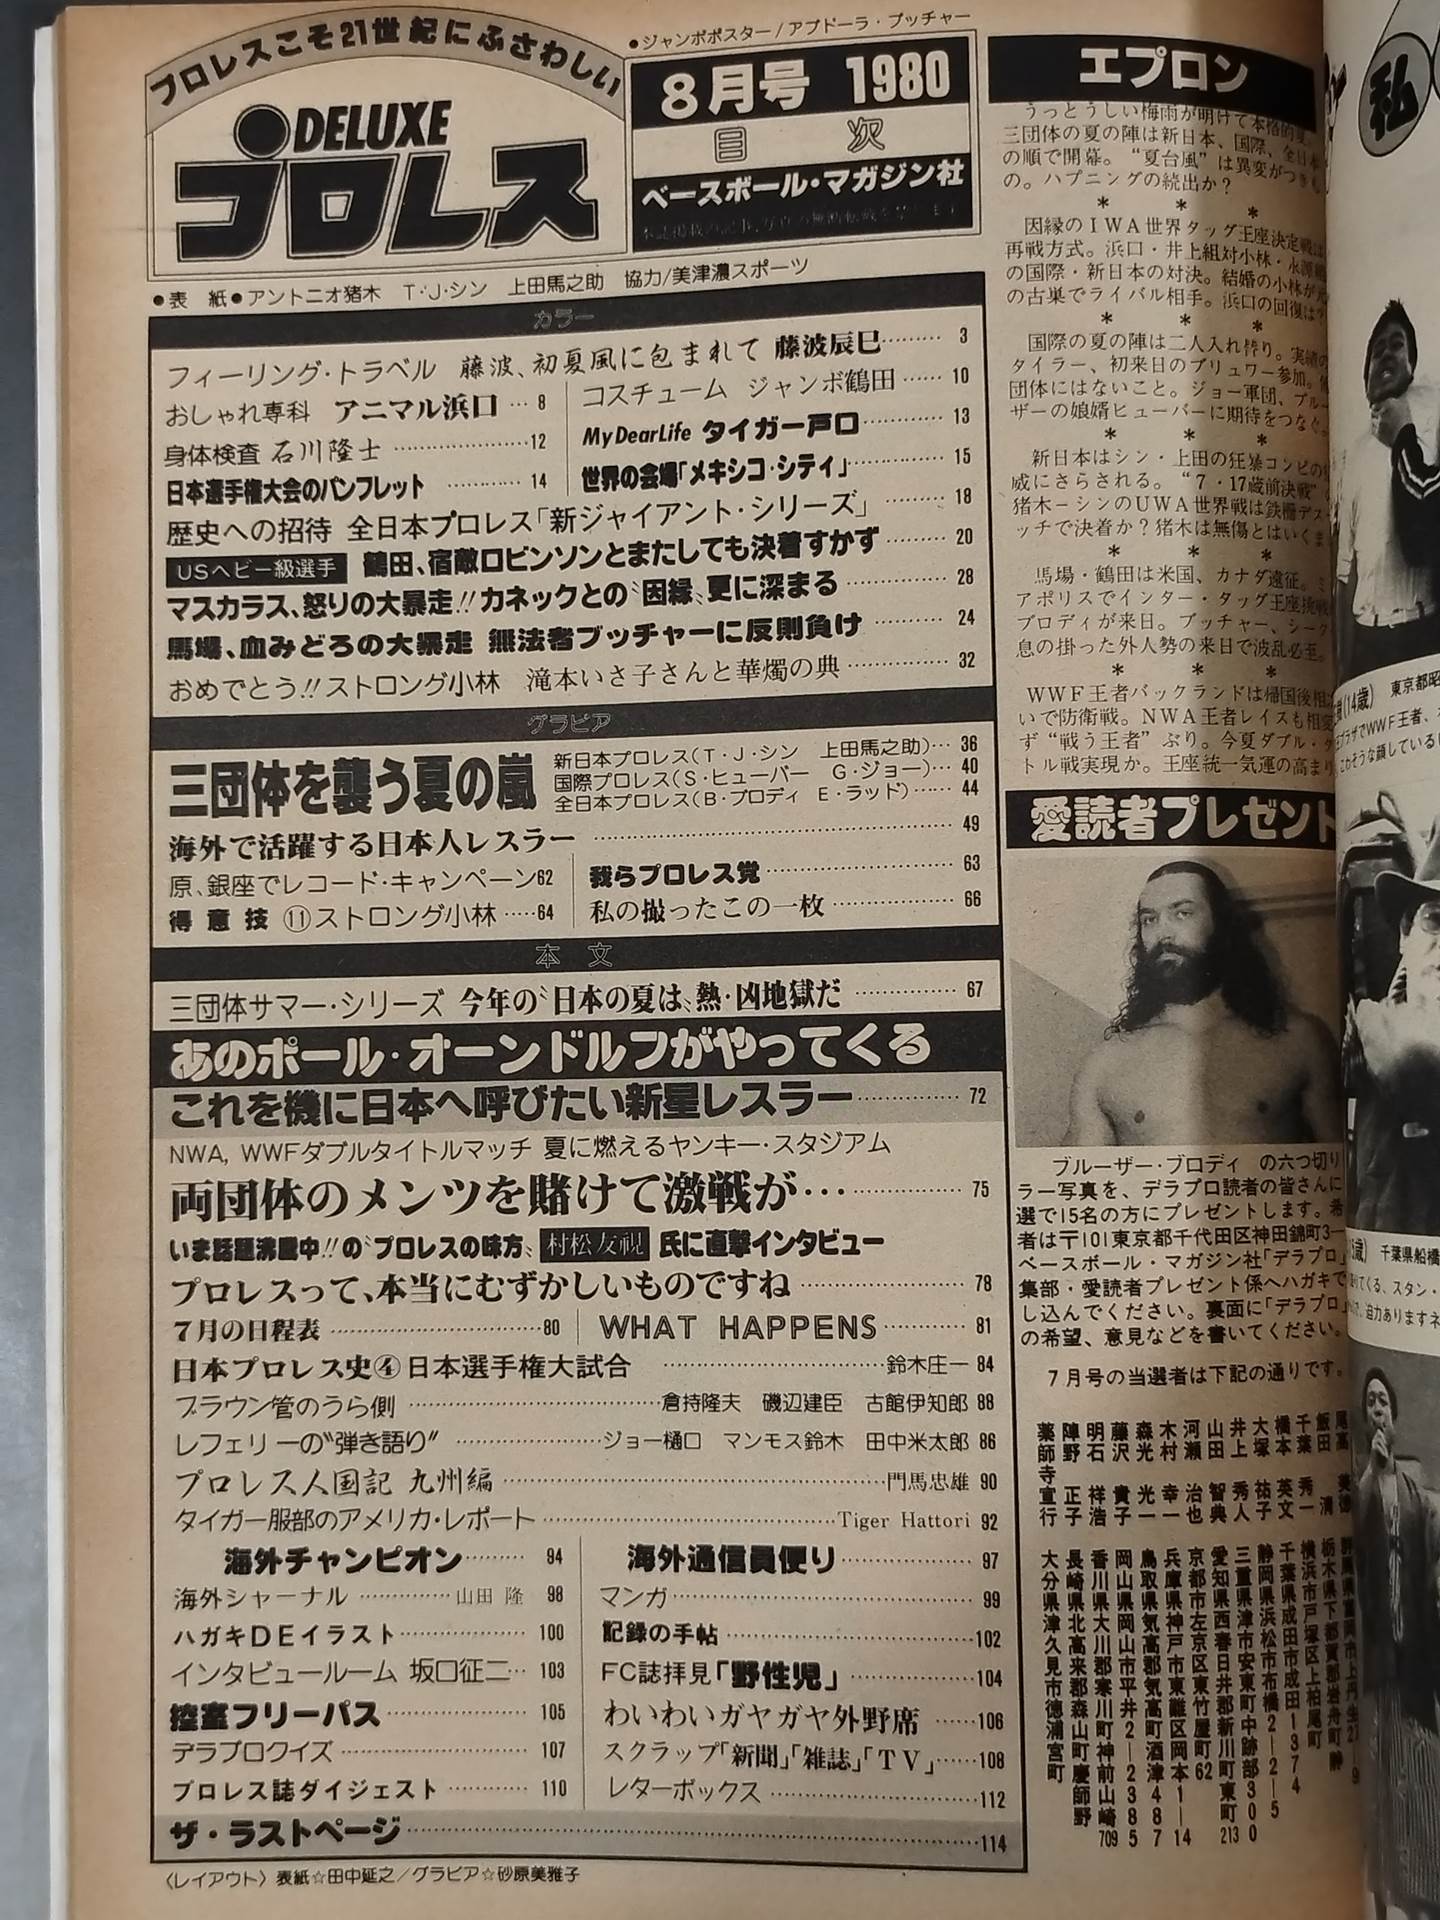 プロレスこそ21世紀にふさわしい
DELUXE
プロレス
●ジャンボポスター/アブドーラ・ブッチャー
8月号 1980
目次
ベースボール・マガジン社
●表 紙●アントニオ猪木 T・J・シン 上田馬之助 協力/美津濃スポーツ
カラー
フィーリング・トラベル 藤波、初夏風に包まれて 藤波辰巳……… 3
おしゃれ専科 アニマル浜口… 8
コスチューム ジャンボ鶴田…… 10
身体検査 石川隆士……………………12
My Dear Life タイガー戸口………… 13
日本選手権大会のパンフレット ………… 14
世界の会場「メキシコ・シティ」………… 15
歴史への招待 全日本プロレス「新ジャイアント・シリーズ」……… 18
USヘビー級選手 鶴田、宿敵ロビンソンとまたしても決着すかず……… 20
マスカラス、怒りの大暴走!!カネックとの〝因縁〟更に深まる………… 28
馬場、血みどろの大暴走 無法者ブッチャーに反則負け……… 24
おめでとう!!ストロング小林 滝本いさ子さんと華燭の典………… 32
グラビア
三団体を襲う夏の嵐
新日本プロレス(T・J・シン 上田馬之助)… 36
国際プロレス(S・ヒューパー G・ジョー)… 40
全日本プロレス(B・ブロディ E・ラッド)…… 44
海外で活躍する日本人レスラー……………………………… 49
原、銀座でレコード・キャンペーン62
我らプロレス党………………… 63
得意技 ⑪ストロング小林……64
私の撮ったこの一枚……………… 66
本文
三団体サマー・シリーズ 今年の〝日本の夏は〟熱・凶地獄だ ………… 67
あのポール・オーンドルフがやってくる
これを機に日本へ呼びたい新星レスラー………… 72
NWA, WWFダブルタイトルマッチ 夏に燃えるヤンキー・スタジアム
両団体のメンツを賭けて激戦が…………… 75
いま話題沸騰中!!の〝プロレスの味方〟村松友視 氏に直撃インタビュー
プロレスって、本当にむずかしいものですね……………… 78
7月の日程表……………………80
WHAT HAPPENS………… 81
日本プロレス史④日本選手権大試合 ……………………鈴木庄一 84
ブラウン管のうら側……………………倉持隆夫 磯辺建臣 古館伊知郎 88
レフェリーの〝弾き語り〟……………ジョー樋口 マンモス鈴木 田中米太郎 86
プロレス人国記 九州編……………………………………門馬忠雄 90
タイガー服部のアメリカ・レポート……………………………Tiger Hattori 92
海外チャンピオン……… 94
海外通信員便り………………… 97
海外ジャーナル …………山田 隆 98
マンガ………………………………… 99
ハガキDEイラスト……………… 100
記録の手帖…………………………102
インタビュールーム 坂口征二… 103
FC誌拝見「野性児」……………104
控室フリーパス………………… 105
わいわいガヤガヤ外野席 ……106
デラプロクイズ…………………… 107
スクラップ「新聞」「雑誌」「TV」……108
プロレス誌ダイジェスト………… 110
レターボックス………………………112
ザ・ラストページ………………………………………………………114
〈レイアウト〉表紙☆田中延之/グラビア☆砂原美雅子
エプロン
うっとうしい梅雨が明けて本格的夏。
三団体の夏の陣は新日本、国際、全日本
の順で開幕。“夏台風”は異変がつきも
の。ハプニングの続出か?
* * *
因縁のIWA世界タッグ王座決定戦は
再戦方式。浜口・井上組対小林・永源組
の国際・新日本の対決。結婚の小林が元
の古巣でライバル相手。浜口の回復は
* * *
国際の夏の陣は二人入れ替り。実績の
タイラー、初来日のブリュワー参加。他
団体にはないこと。ジョー軍団、ブルー
ザーの娘婿ヒューバーに期待をつなぐ。
* * *
新日本はシン・上田の狂暴コンビの
威にさらされる。“7・17蔵前決戦”の
猪木-シンのUWA世界戦は鉄柵デスマ
ッチで決着か?猪木は無傷とはいくま
* * *
馬場・鶴田は米国、カナダ遠征。ミ
アポリスでインター・タッグ王座挑戦
ブロディが来日。ブッチャー、シーク
息の掛った外人勢の来日で波乱必至。
* * *
WWF王者バックランドは帰国後相
いで防衛戦。NWA王者レイスも相変
ず“戦う王者”ぶり。今夏ダブル・タ
トル戦実現か。王座統一気運の高まり
愛読者プレゼント
ブルーザー・ブロディ の六つ切り
ラー写真を、デラプロ読者の皆さんに
選で15名の方にプレゼントします。希
者は〒101東京都千代田区神田錦町3―
ベースボール・マガジン社「デラプロ」
集部・愛読者プレゼント係へハガキで
し込んでください。裏面に「デラプロ」
の希望、意見などを書いてください。
7月号の当選者は下記の通りです。
飯田 清 栃木県下都賀郡岩舟町静
千葉 秀一 横浜市戸塚区上柏尾町
橋本 英文 千葉県成田市成田1374
大塚 祐子 静岡県浜松市布橋2―2―5
井上 秀人 三重県津市安東町中跡部300
山田 智典 愛知県西春日井郡新川町東町213
河瀬 治也 京都市左京区東竹屋町62
木村 幸一 兵庫県神戸市東灘区岡本1―14
森光 光一 鳥取県気高郡気高町酒津487
藤沢 貴子 岡山県岡山市平井2―2385
明石 祥浩 香川県大川郡寒川町神前山崎709
陣野 正子 長崎県北高来郡森山町慶師野
薬師寺宣行 大分県津久見市徳浦宮町
私
(14歳) 東京都昭
プラザでWWF王者、
こわそうな顔している
歳) 千葉県船橋
てくる、スタン・
迫力ありますネ